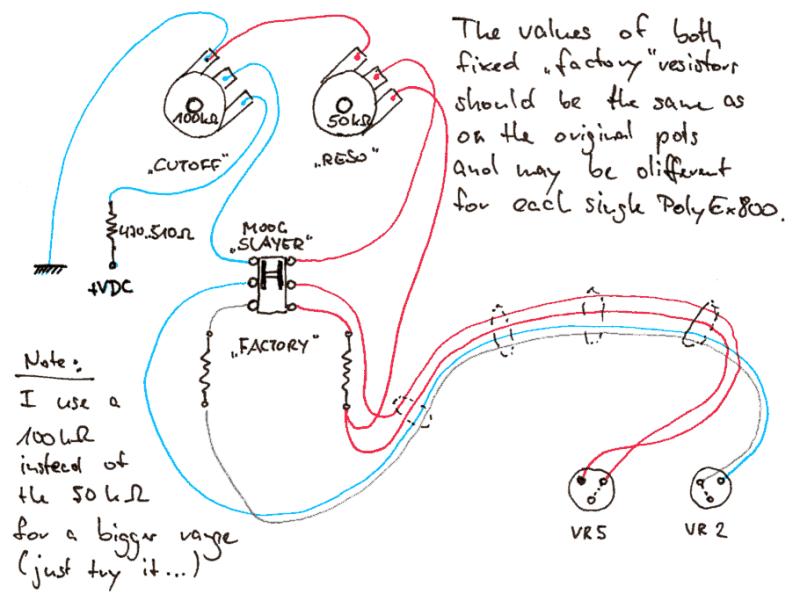 The values of both
fixed „factory" resistors
should be the same as
on the original pots
and may be different
for each single PolyEx800.
100kΩ
50kΩ
„CUTOFF"
„RESO"
470..510Ω
+VDC
MOOG
„SLAYER"
„FACTORY"
Note:
I use a
100kΩ
instead of
the 50kΩ
for a bigger range
(just try it...)
VR5
VR2